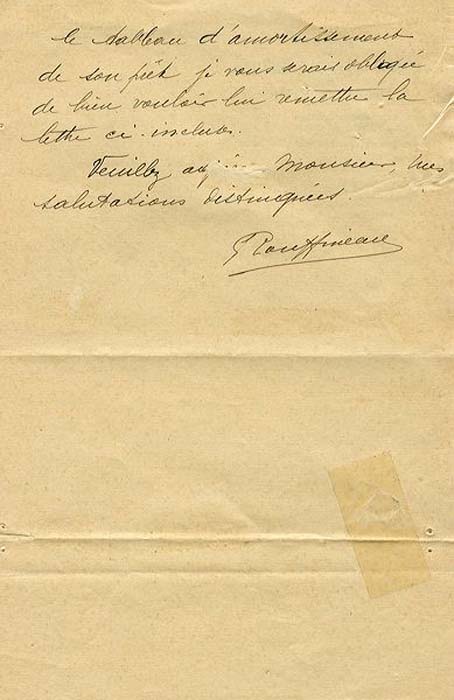 le tableau d'amortissement
de son prêt je vous serais obligé
de bien vouloir lui remettre la
lettre ci-incluse.
Veuillez Monsieur, mes
salutations distinguées.